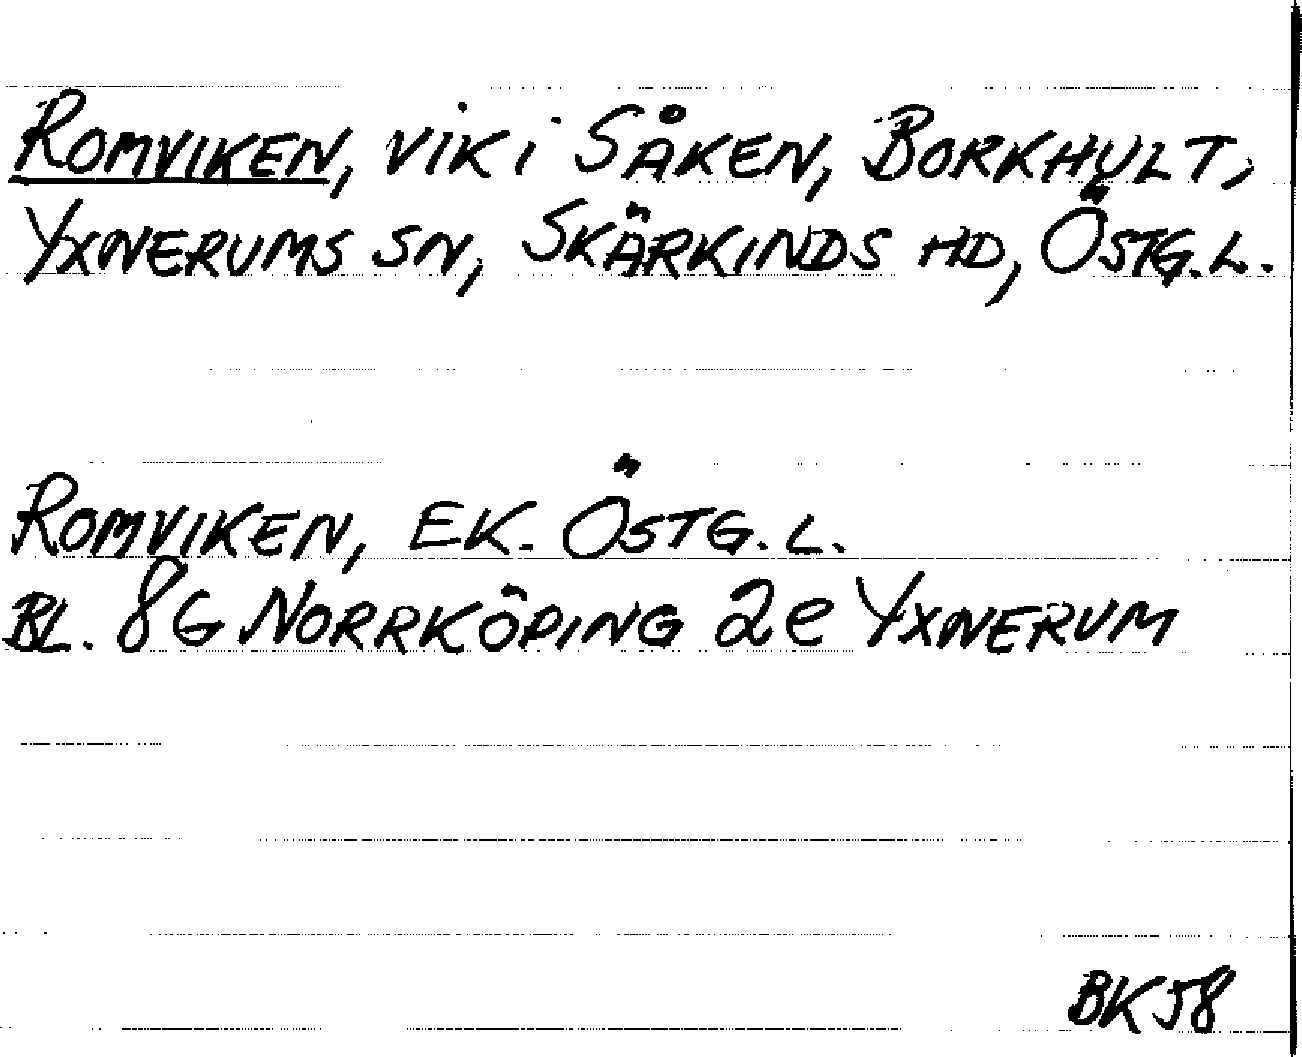 ROMVIKEN, VIK I SÅKEN, BORKHULT,
YXNERUMS SN, SKÄRKINDS HD, ÖSTG.L.
ROMVIKEN, EK. ÖSTG.L.
BL. 8G NORRKÖPING 2e YXNERUM
BK58